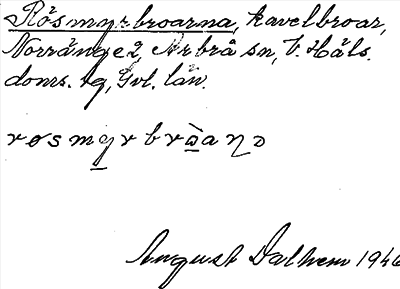 Rösmyrbroarna, kavelbroar,
Norränge 2, Arbrå sn, V. Häls.
doms. tg, Gvl. län.
røsmyrbrὼ̲aηɔ
August Dalhem 1946